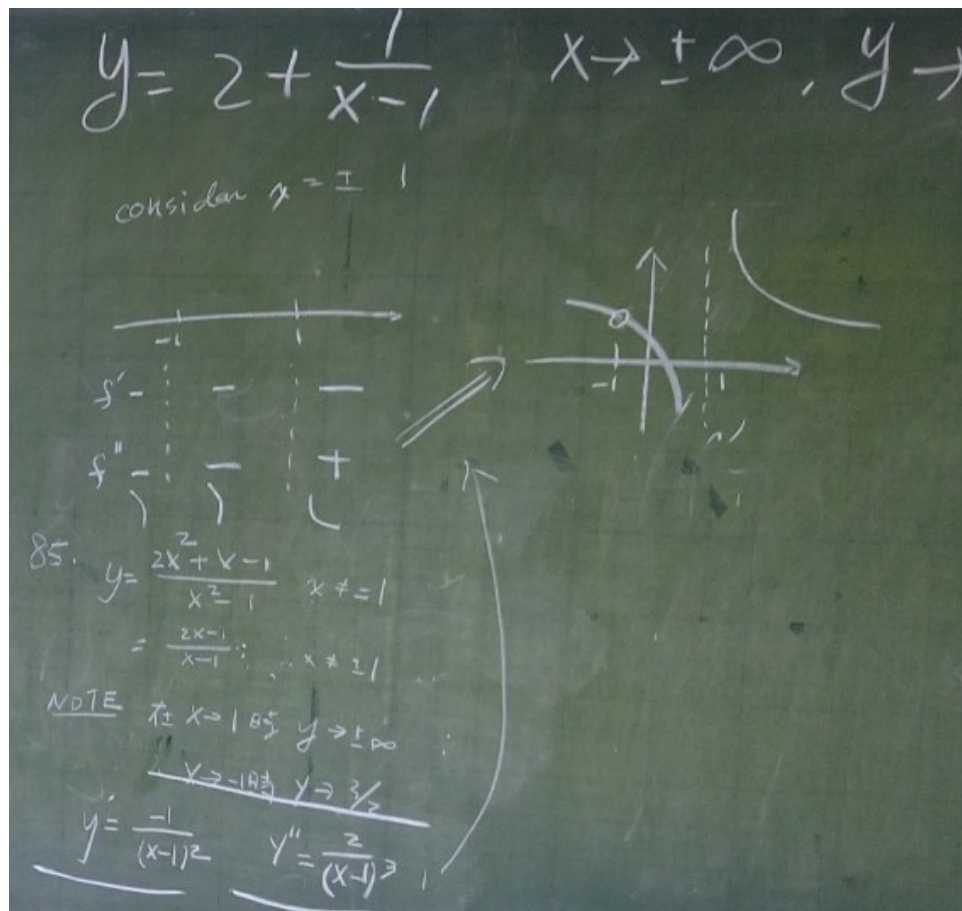 y = 2 + 1/(x-1)    x → ± ∞ , y →
consider x = ± 1
-1    1
f' -    -    -
f'' -    -    +
-1    1
85. y = (2x²+x-1)/(x²-1)    x ≠ = 1
= (2x-1)/(x-1) ;    x ≠ ±1
NOTE 在 x → 1 時 y → ±∞
x → -1 時 y → 3/2
y' = -1/(x-1)²    y'' = 2/(x-1)³